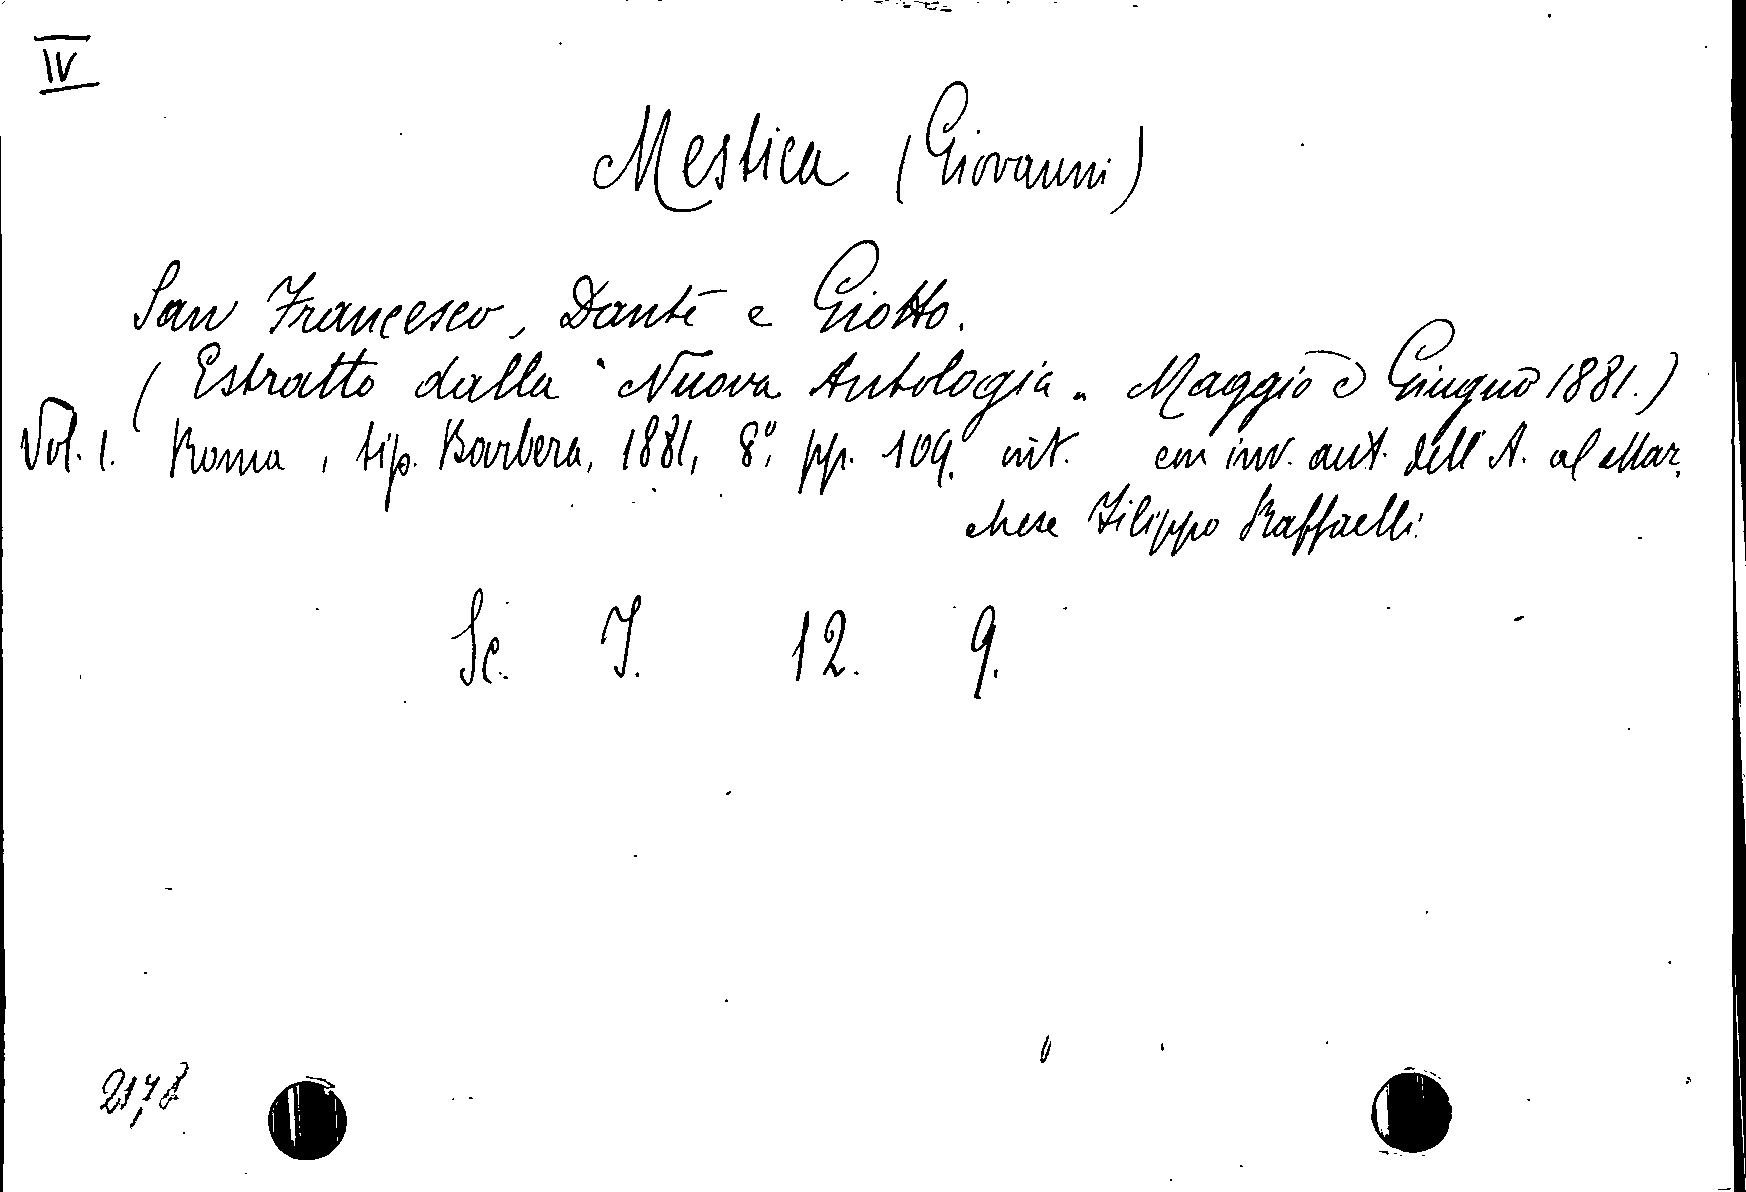 IV
Mestica (Giovanni)
San Francesco, Dante e Giotto.
(Estratto dalla "Nuova Antologia" Maggio e Giugno 1881.)
Vol. 1. Roma, tip. Barbera, 1881, 8°, pp. 109. int. con inv. aut. dell'A. al Mar-
chese Filippo Raffaelli.
Sc. I. 12. 9.
2178